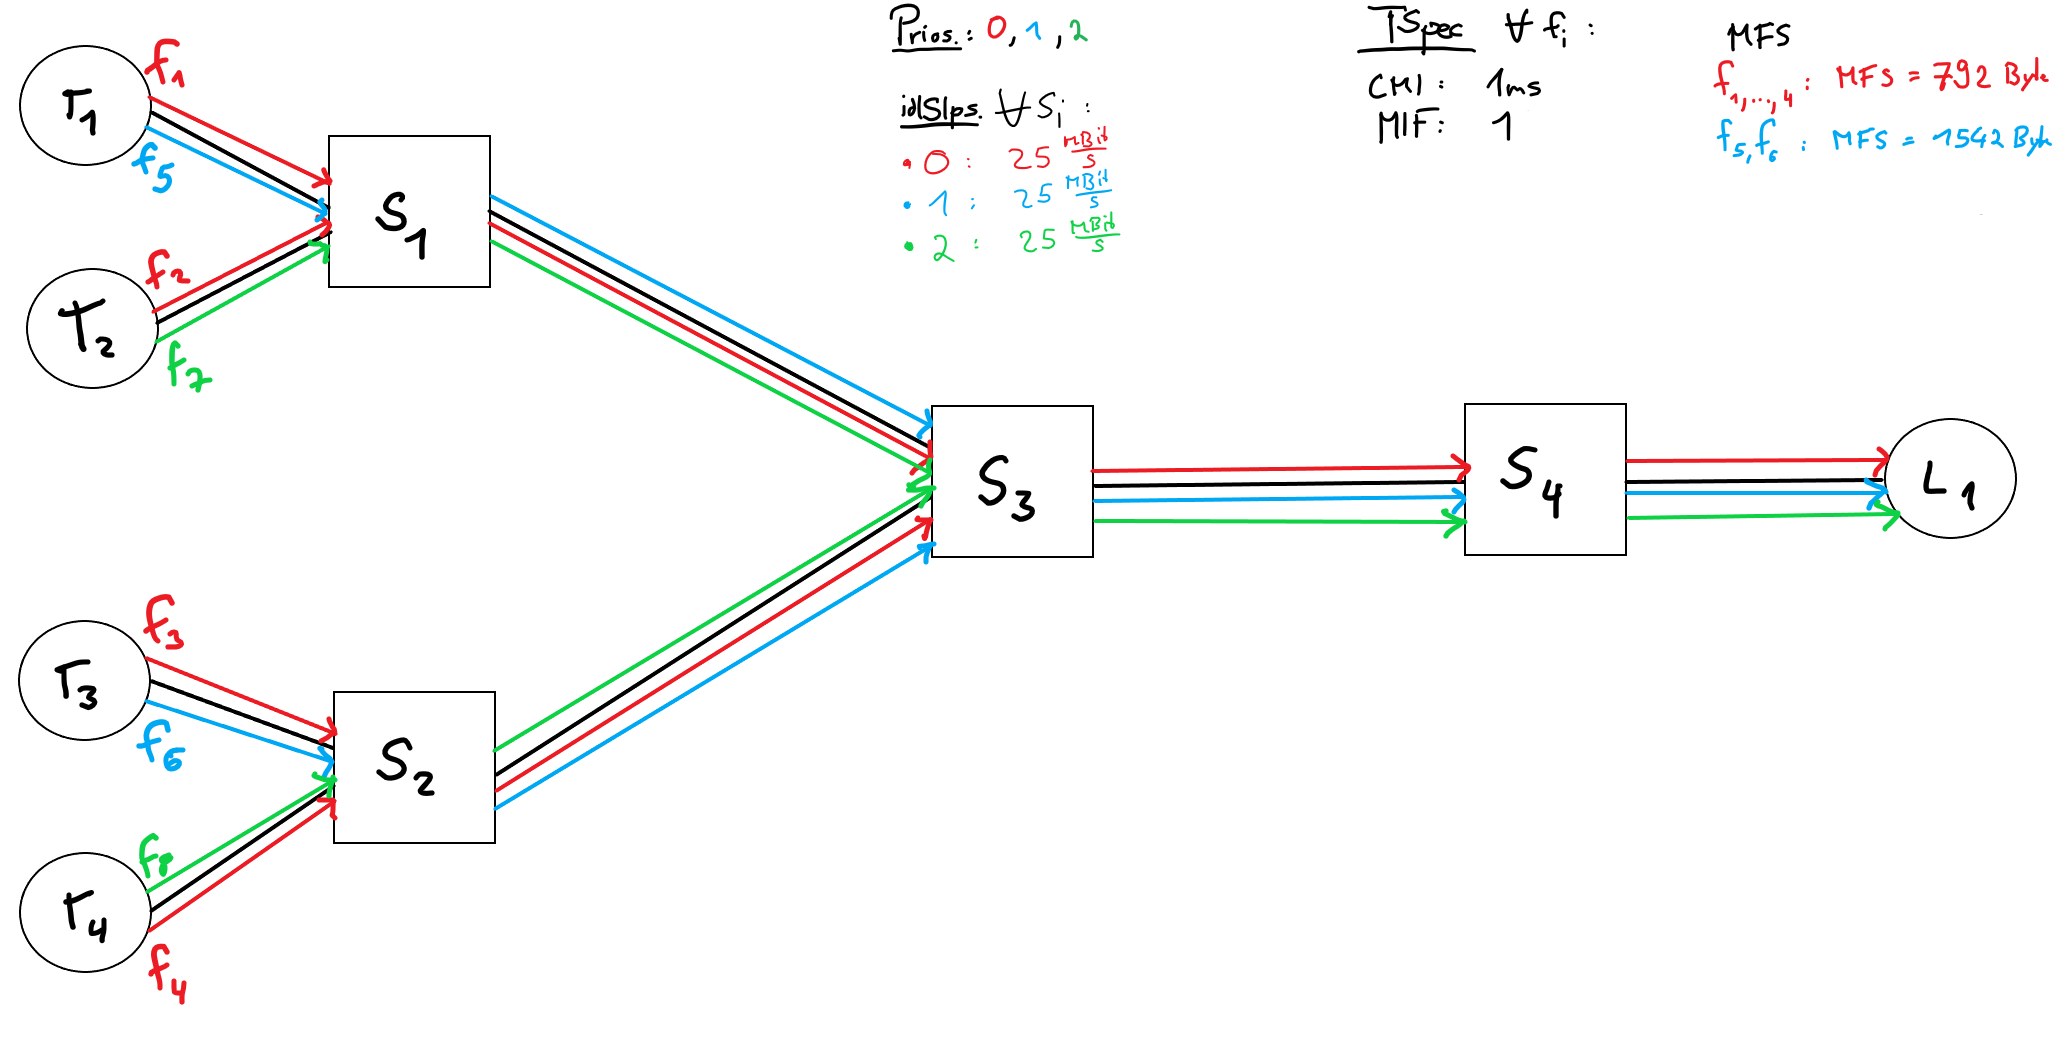 Prios.: 0, 1, 2
idlSlps. ∀ Si :
• 0 : 25 MBit/s
• 1 : 25 MBit/s
• 2 : 25 MBit/s
TSpec ∀ fi :
CMI : 1ms
MIF : 1
MFS
f1,...,4 : MFS = 792 Byte
f5, f6 : MFS = 1542 Byte
T1
f1
f5
T2
f2
f7
S1
T3
f3
f6
T4
f8
f4
S2
S3
S4
L1